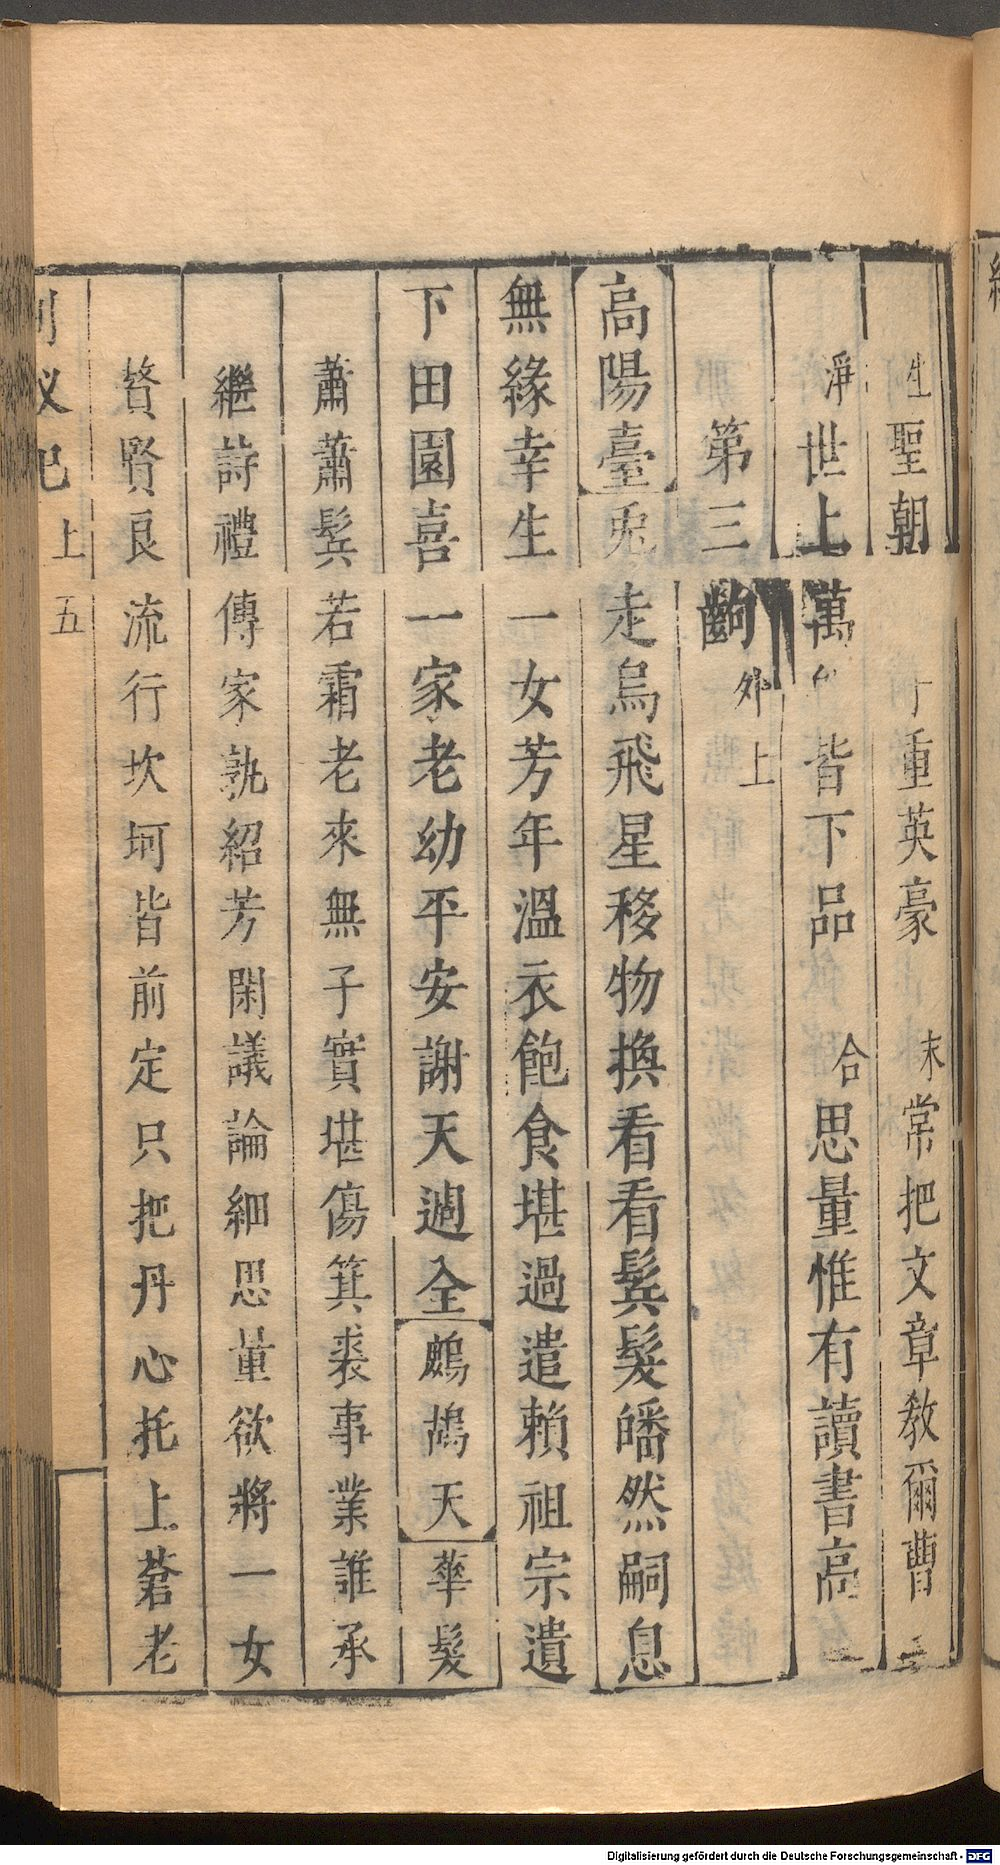 生聖朝 重英豪 末常把文章教爾曹
淨世上萬 皆下品 合思量惟有讀書高
第三齣 外上
高陽臺 兎走烏飛星移物換看看鬂髮皤然嗣息
無緣幸生一女芳年溫衣飽食堪過遣賴祖宗遺
下田園喜一家老幼平安謝天週全 鷓鴣天 華髮
蕭蕭鬂若霜老來無子實堪傷箕裘事業誰承
繼詩禮傳家孰紹芳閑議論細思量欲將一女
贅賢良流行坎坷皆前定只把丹心托上蒼老
上 五
Digitalisierung gefördert durch die Deutsche Forschungsgemeinschaft - DFG